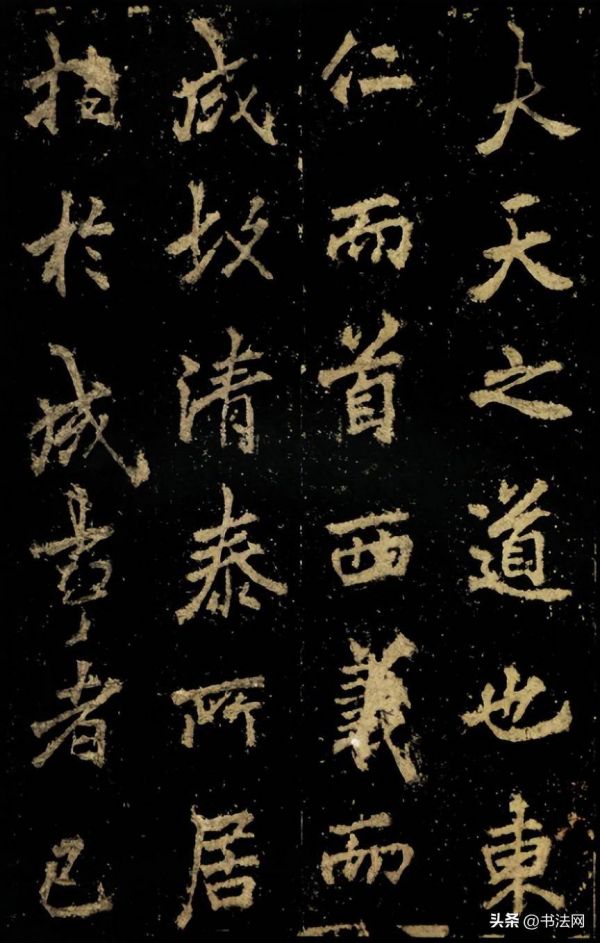 夫天之道也東
仁而首西義而
成故清泰所居
指於成事者已
头条 @书法网